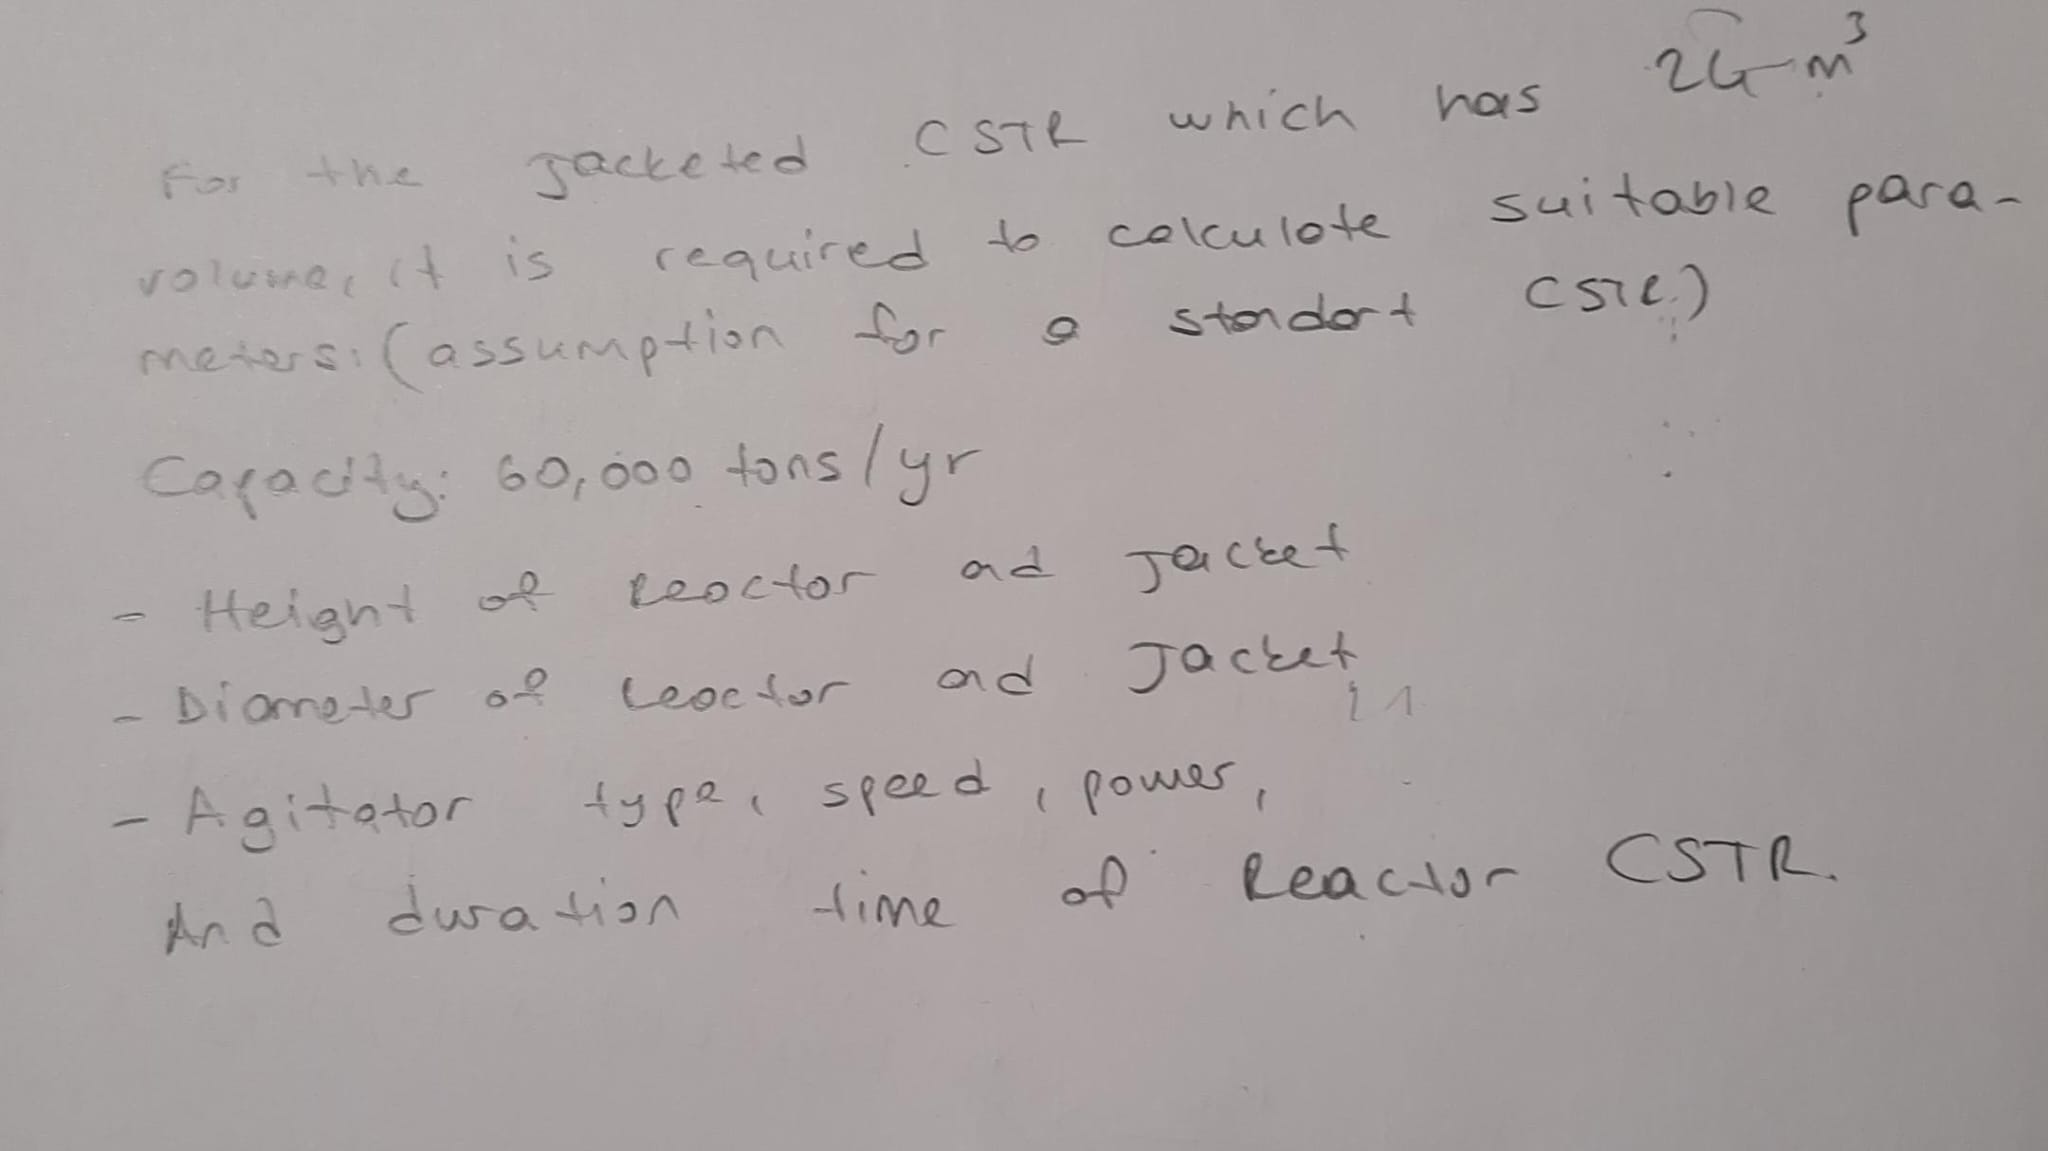 For the Jacketed CSTR which has m³
volume, it is required to calculate suitable para-
meters: (assumption for a standart CSTR.)
Capacity: 60,000 tons/yr
- Height of Reactor and Jacket
- Diameter of Reactor and Jacket
- Agitator type, speed, power,
And duration time of Reactor CSTR.